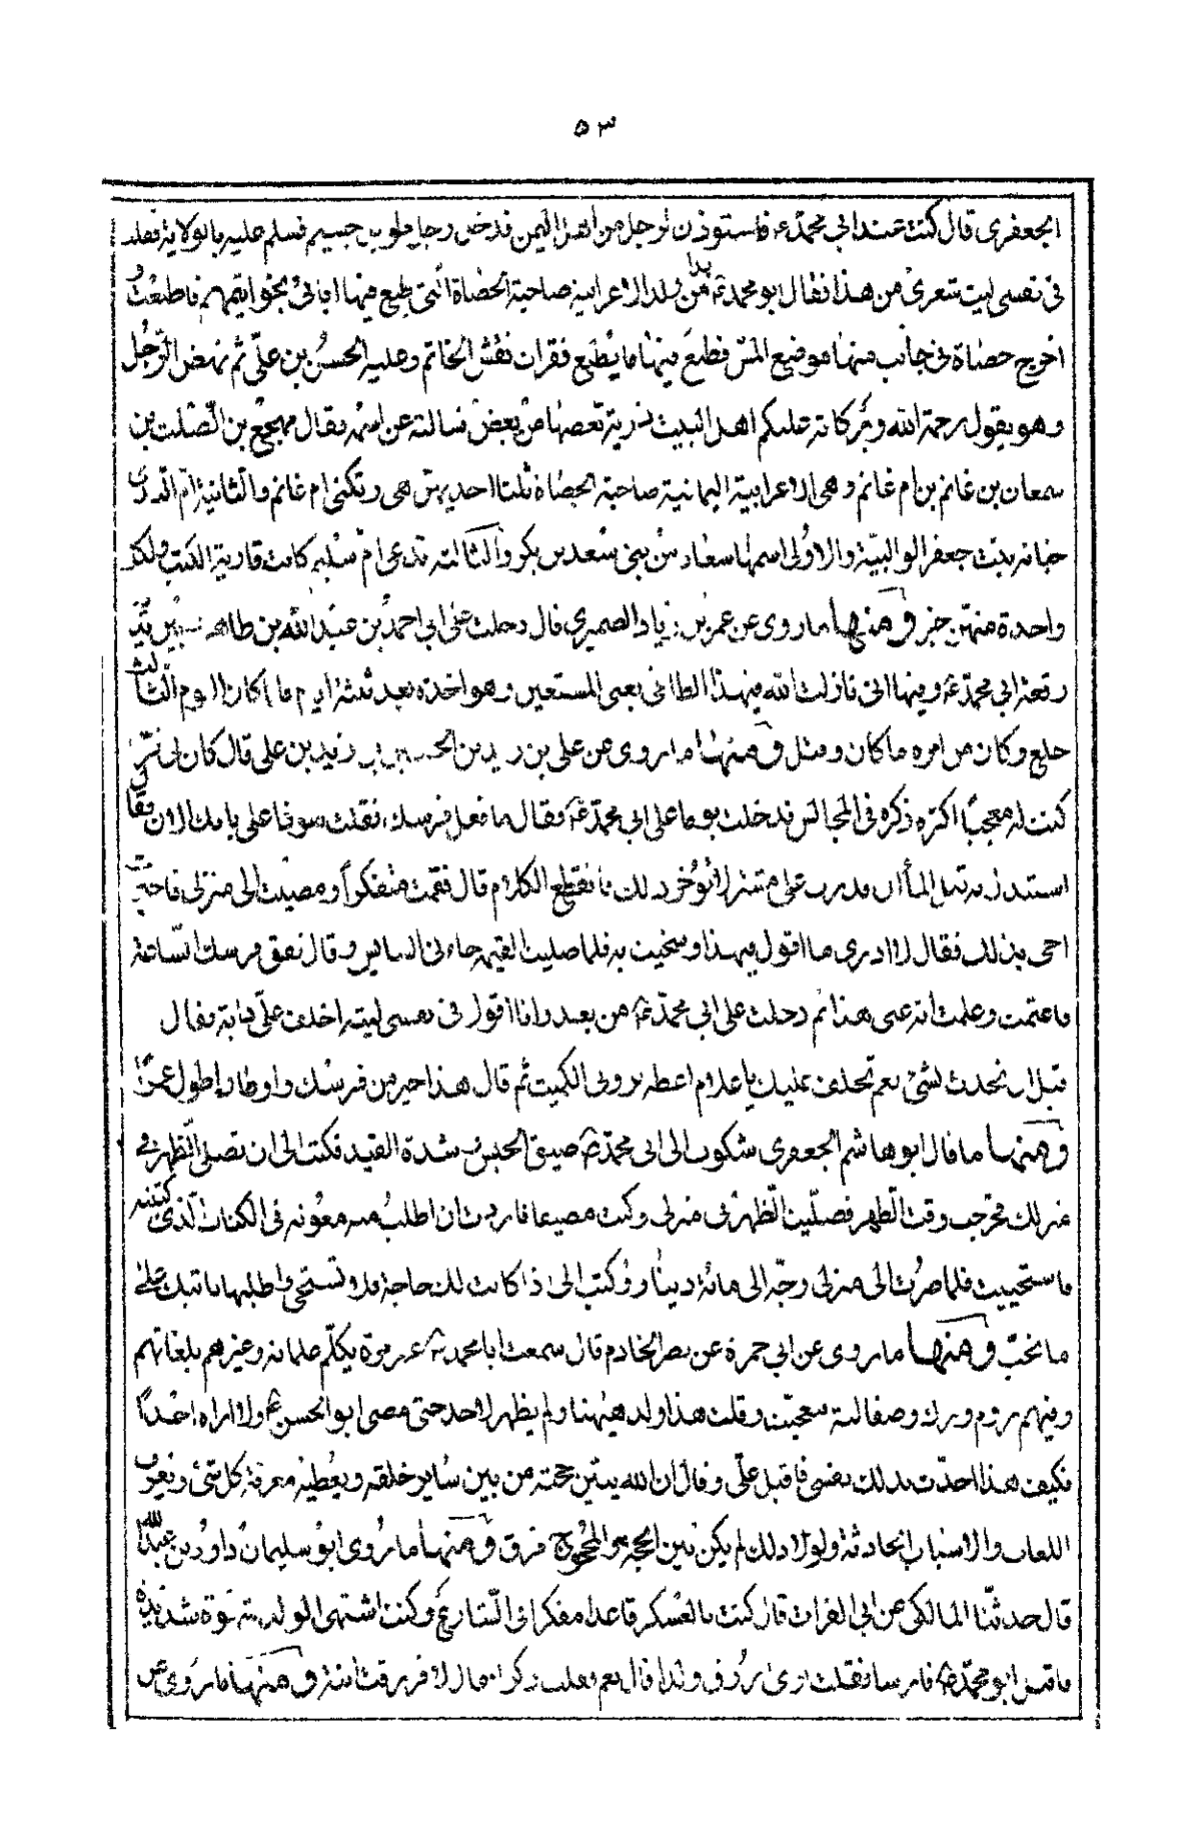 ٥٣
الجعفرى قال كنت عند ابي محمد ع فاستوذن لرجل من اهل اليمن فدخل رجل جسيم فسلم عليه بالولاية فقلت
فى نفسى ليت شعرى من هذا فقال ابو محمد ع هذا من ولد الاعرابية صاحبة الحصاة التى طبع فيها ابائى بخواتيمهم فانطبعت
اخرج حصاة فى جانب منها موضع املس فطبع فيها فانطبع فقرات نقش الخاتم وعليه الحسن بن علىّ ثم نهض الرّجل
وهو يقول رحمة الله وبركاته عليكم اهل البيت ذرية بعضها من بعض فسالته عن اسمه فقال مهجع بن الصّلت بن
سمعان بن غانم بن ام غانم وهى الاعرابية اليمانية صاحبة الحصاة ثلث احديهن هى وتكنى ام غانم والثانية امّ الندى
حبابه بنت جعفر الوالبيّة والاولى اسمها سعاد من بنى سعد بن بكر والثالثة تدعى امّ سليم كانت قارية الكتب ولكل
واحدة منهنّ خبر ومنها ما روى عن عمر بن زياد الصميرى قال دخلت على ابى احمد بن عبد الله بن طاهر وبين يديه
رقعة ابى محمد ع وفيها انى نازلت الله فى هذا الطاغى يعنى المستعين وهو اخذه بعد ثلثة ايام فلما كان اليوم الثالث
خلع وكان من امره ما كان وقتل ومنها ما روى عن على بن زيد بن الحسين بن زيد بن على قال كان لى فرس
كنت له معجبًا اكثر ذكره فى المجالس فدخلت يوما على ابى محمد ع فقال ما فعل فرسك فقلت هوذا على بابك الان فقال
استبدل به قبل المسأ ان قدرت على مشتر لا تؤخر ذلك فانقطع الكلام قال فقمت متفكراً ومضيت الى منزلى فاخبرت
اخى بذلك فقال لا ادرى ما اقول فى هذا وشححت به فلما صليت العتمة جاءنى السايس وقال نفق فرسك السّاعة
فاغتممت وعلمت انه عنى هذا ثم دخلت على ابى محمد ع من بعد وانا اقول فى نفسى ليته اخلف علىّ دابة فقال
قبل ان تحدث بشئ نعم نخلف عليك يا غلام اعطه برذونى الكميت ثم قال هذا خير من فرسك واوطا واطول عمرًا
ومنها ما قال ابو هاشم الجعفرى شكوت الى ابى محمد ع ضيق الحبس وشدة القيد فكتب الى ان تصلى الظهر فى
منزلك فخرجت وقت الظهر فصلّيت الظهر فى منزلى وكنت مضيقا فاردت ان اطلب منه معونة فى الكتاب الّذى كتبته
فاستحييت فلما صرت الى منزلى وجّه الى مائة دينار وكتب الى اذا كانت لك حاجة فلا تستحى واطلبها ياتيك على
ما تحبّ ومنها ما روى عن ابى حمزة عن نصر الخادم قال سمعت ابا محمد ع غير مرة يكلّم غلمانه وغيرهم بلغاتهم
وفيهم روم وترك وصقالبة فتعجبت وقلت هذا ولد هيهنا ولم يظهر لاحد حتى مضى ابو الحسن ع ولا اراه احدًا
فكيف هذا احدّث بذلك نفسى فاقبل علىّ وقال ان الله يبيّن حجته من بين ساير خلقه ويعطيه معرفة كل شئ ويعرف
اللغات والاسباب والحادثة ولولا ذلك لم يكن بين الحجة والمحجوج فرق ومنها ما روى ابو سليمان داود بن عبد الله
قال حدثنا المالكى عن ابى الفرات قال كنت بالعسكر قاعدا مفكرا فى الشارع وكنت اشتهى الولد شهوة شديدة
فاقبل ابو محمد ع فارسا فقلت ترى ارزق ولدا قال نعم فقلت ذكرا فقال لا فرزقت ابنة ومنها ما روى عن